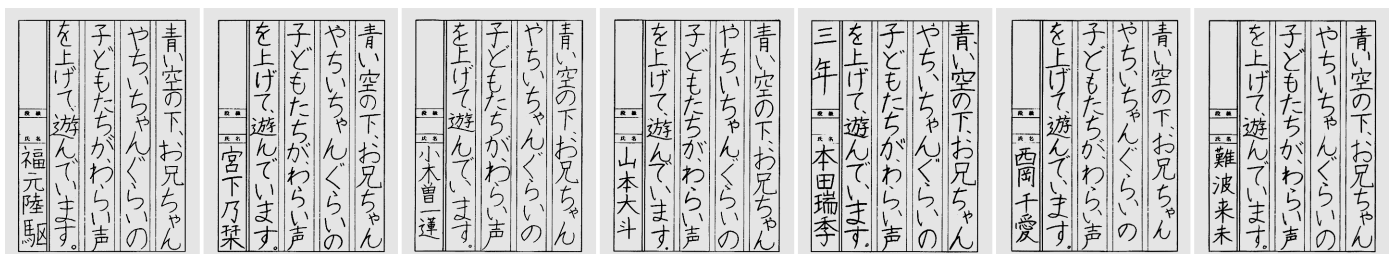 青い空の下、お兄ちゃん
やちいちゃんぐらいの
子どもたちが、わらい声
を上げて、遊んでいます。
段級
氏名
福元陸駆
青い空の下、お兄ちゃん
やちいちゃんぐらいの
子どもたちが、わらい声
を上げて、遊んでいます。
段級
氏名
宮下乃栞
青い空の下、お兄ちゃん
やちいちゃんぐらいの
子どもたちが、わらい声
を上げて、遊んでいます。
段級
氏名
小木曽一蓮
青い空の下、お兄ちゃん
やちいちゃんぐらいの
子どもたちが、わらい声
を上げて、遊んでいます。
段級
氏名
山本大斗
青い空の下、お兄ちゃん
やちいちゃんぐらいの
子どもたちが、わらい声
を上げて、遊んでいます。
三年
段級
氏名
本田瑞季
青い空の下、お兄ちゃん
やちいちゃんぐらいの
子どもたちが、わらい声
を上げて、遊んでいます。
段級
氏名
西岡千愛
青い空の下、お兄ちゃん
やちいちゃんぐらいの
子どもたちが、わらい声
を上げて、遊んでいます。
段級
氏名
難波来未